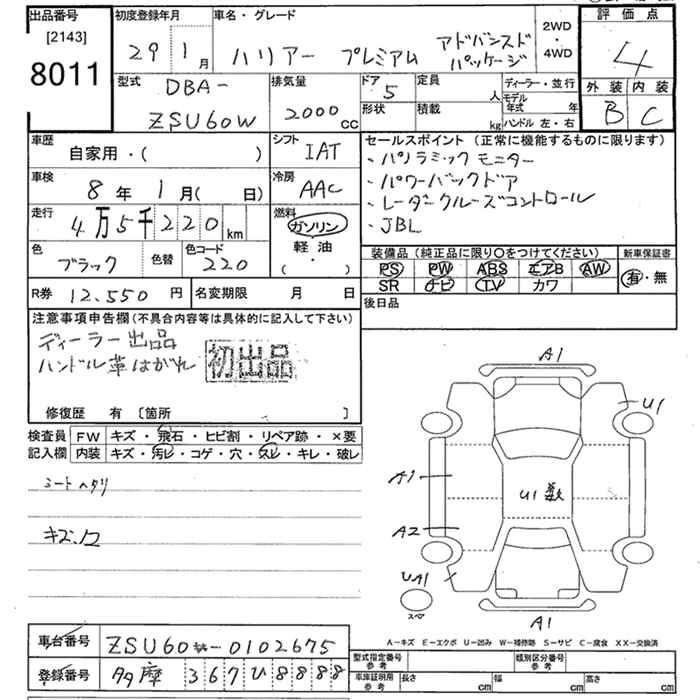 出品番号 初度登録年月 車名・グレード 2WD・4WD 評価点
[2143]
8011 29年1月 ハリアー プレミアム アドバンスドパッケージ 4
型式 DBA-ZSU60W 排気量 2000cc ドア 5 定員 人 ディーラー・並行 外装 内装
形状 積載 kg モデル年式 年 ハンドル 左・右 B C
車歴 自家用・( ) シフト IAT セールスポイント (正常に機能するものに限ります)
・パノラミックモニター
車検 8年1月( 日) 冷房 AAC ・パワーバックドア
・レーダークルーズコントロール
走行 4万5千220km 燃料 ガソリン ・JBL
軽油・( )
色 ブラック 色替 色コード 220 装備品 (純正品に限り○をつけてください) 新車保証書
PS PW ABS エアB AW 有・無
SR ナビ TV カワ
R券 12,550円 名変期限 月 日 後日品
注意事項申告欄(不具合内容等は具体的に記入して下さい)
ディーラー出品
ハンドル革はがれ 初出品
A1
修復歴 有 [箇所 ]
U1
検査員 FW キズ・飛石・ヒビ割・リペア跡・×要
記入欄 内装 キズ・汚レ・コゲ・穴・スレ・キレ・破レ
A1
シートヘタリ
U1 数
キズ.凹
A2
UA1
スペア
A1
A－キズ E－エクボ U－凹み W－補修跡 S－サビ C－腐食 XX－交換済
車台番号 ZSU60-0102675 型式指定番号 参考 類別区分番号 参考
登録番号 多摩 367 ひ 8888 車庫証明用 参考 長さ cm 幅 cm 高さ cm